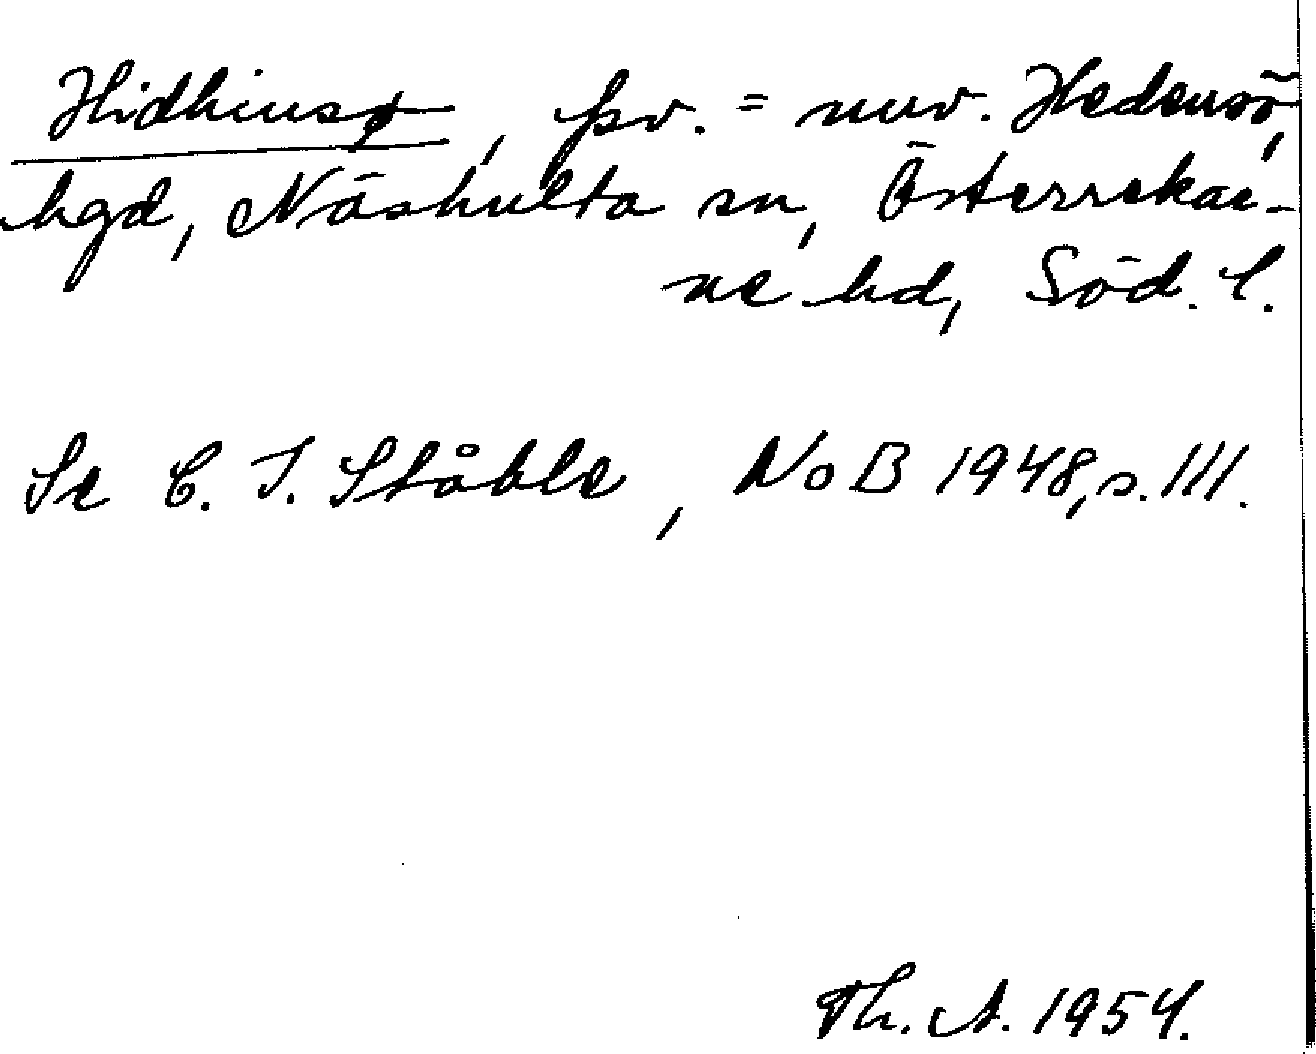 Hidhinsø, fsv. = nuv. Hedensö,
hgd, Näshulta sn, Österrekar-
ne hd, Söd. l.
Se C. I. Ståhle, NoB 1948, s. 111.
Th. A. 1954.